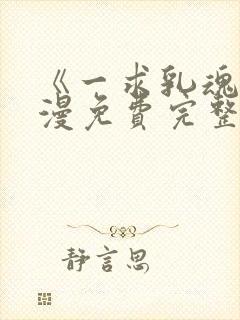 《一求乳魂
漫免费完整
静言思